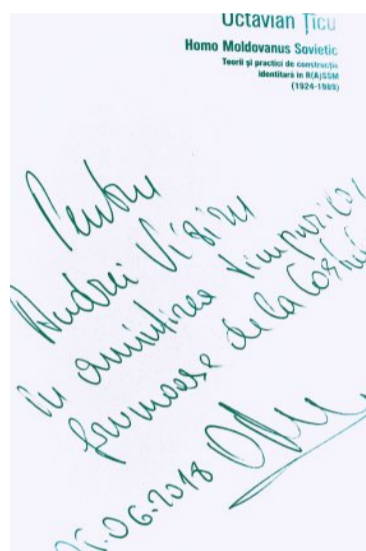 Octavian Țîcu
Homo Moldovanus Sovietic
Teorii și practici de construcție
identitară în R(A)SSM
(1924-1989)
Pentru
Andrei Vizitiu
cu amintirea timpurilor
frumoase de la
.06.2018